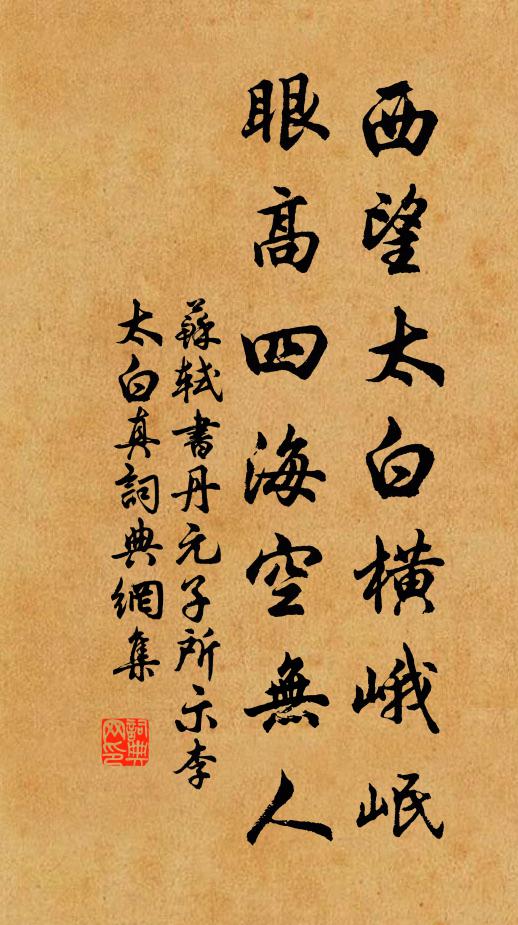 西望太白橫峨岷
眼高四海空無人
蘇軾書丹元子所示李
太白真詞典網集
詞典网印